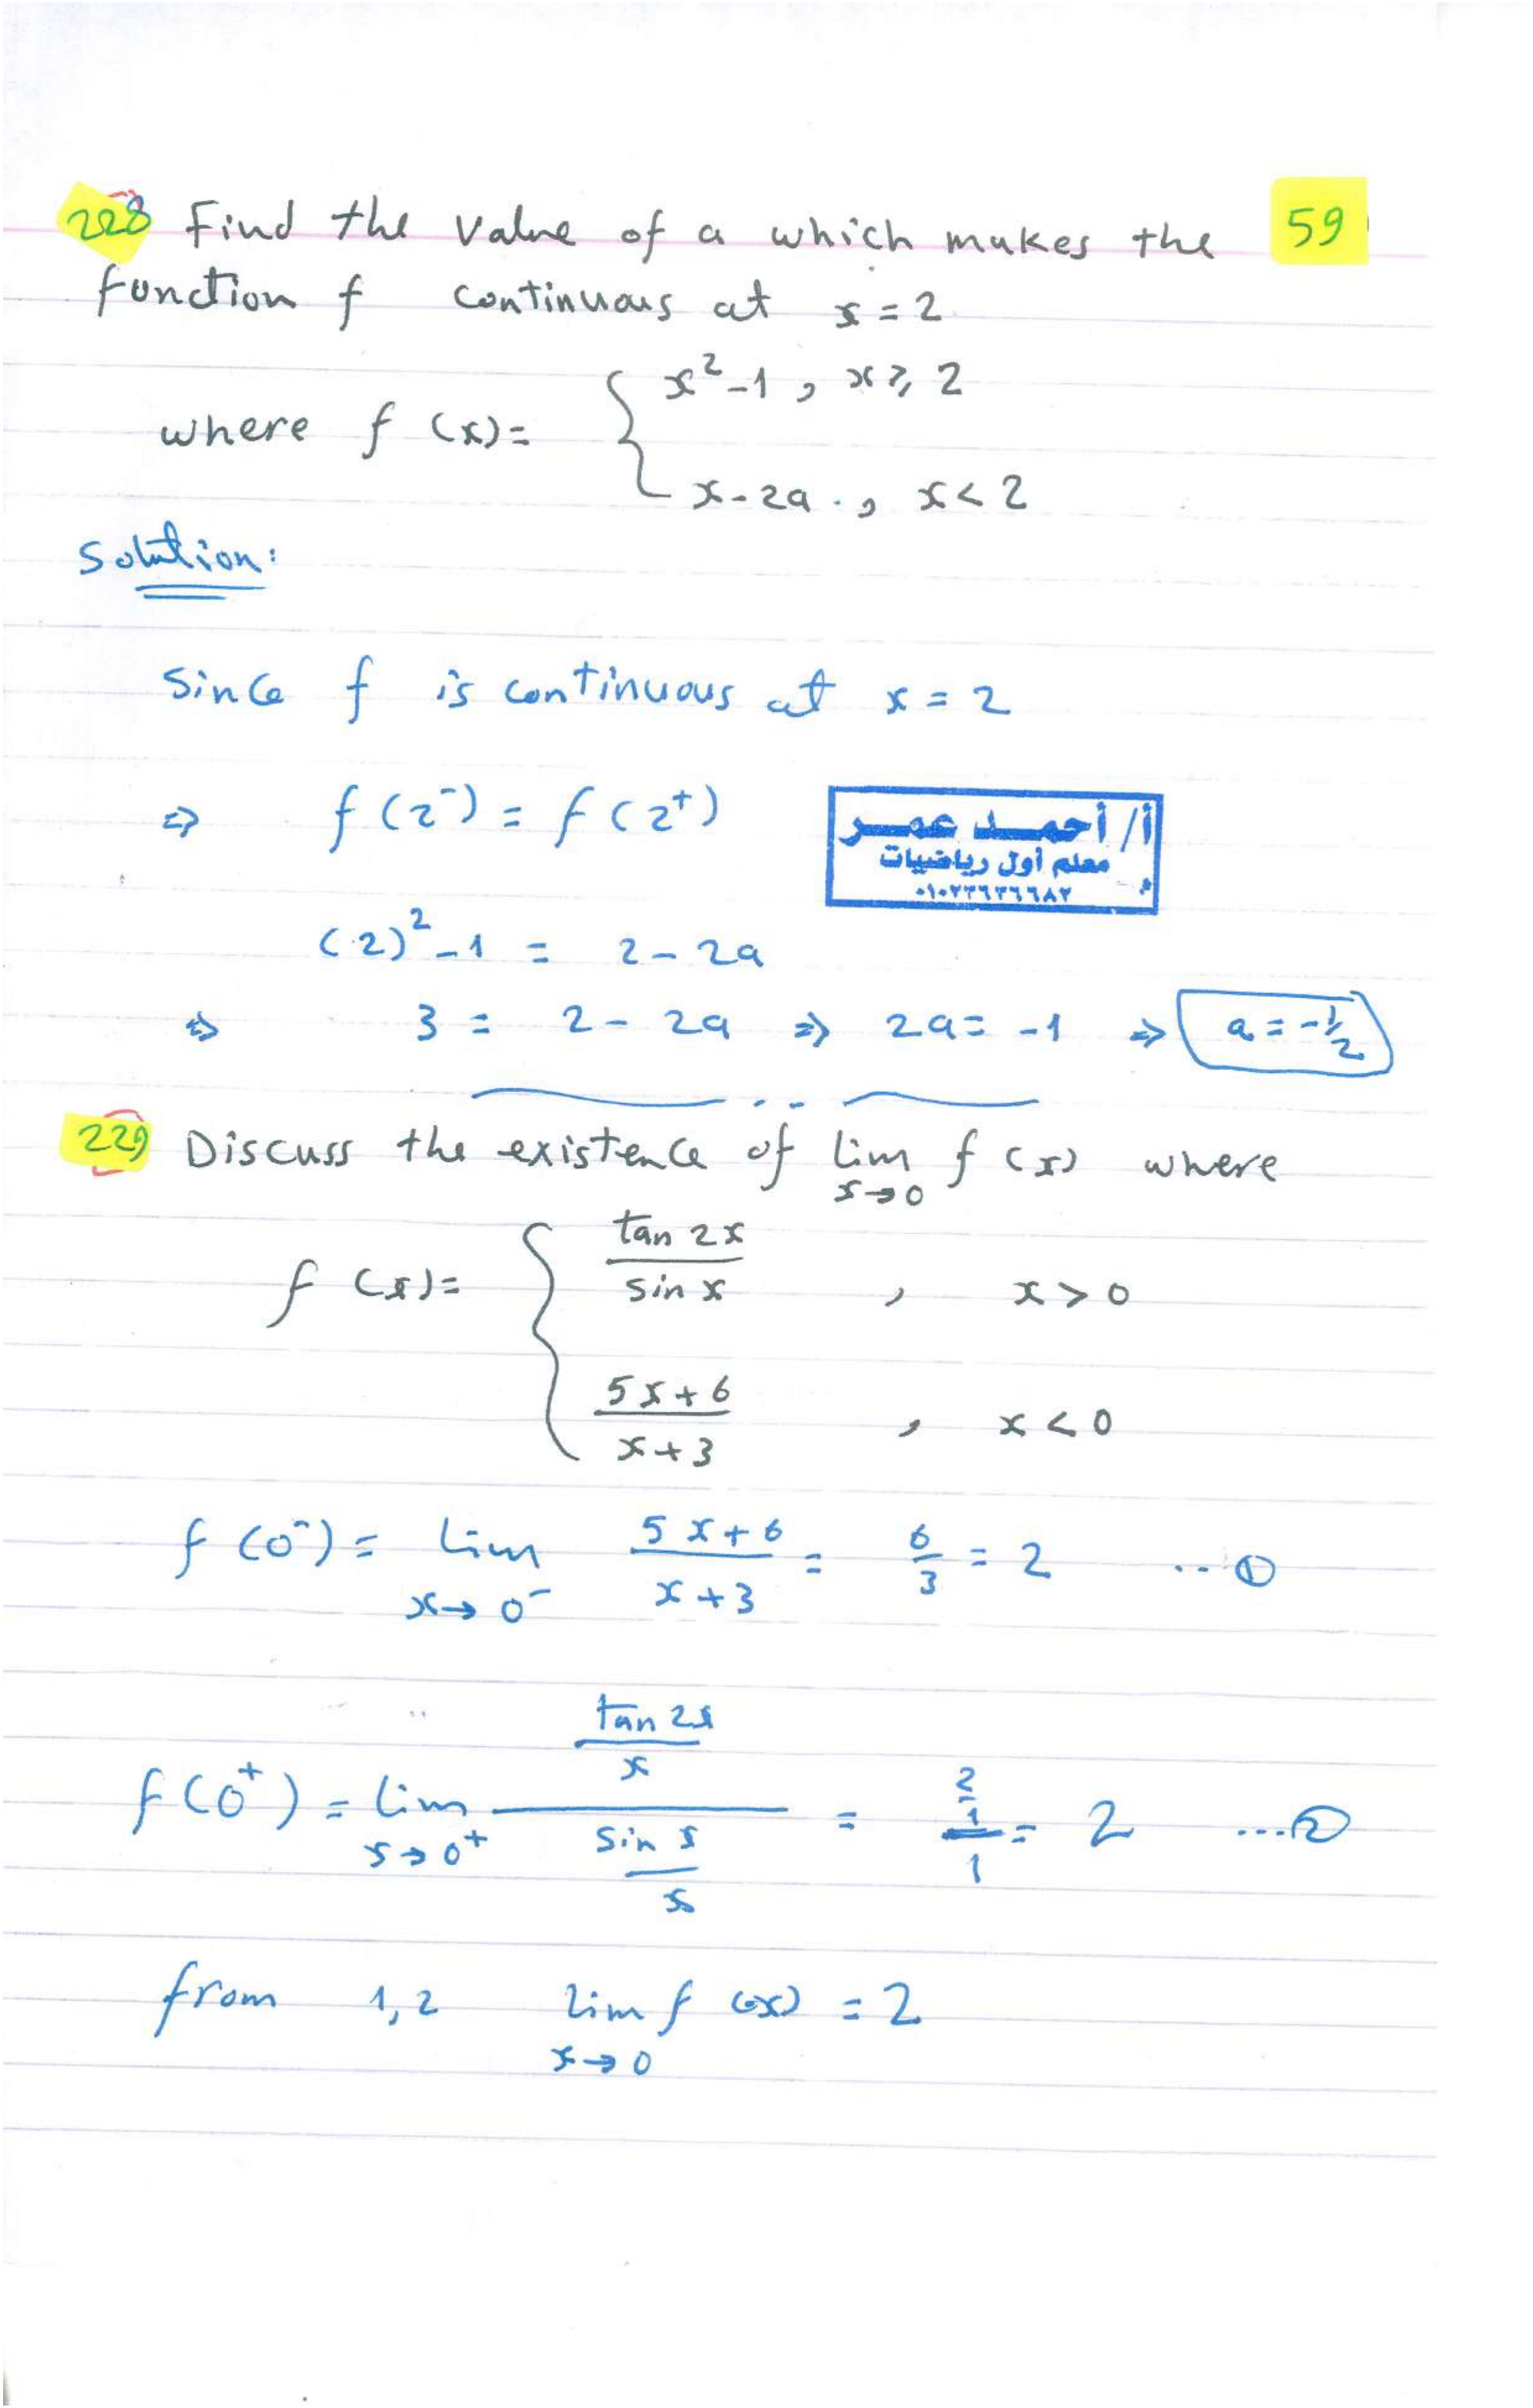 228 Find the value of a which makes the 59
function f continuous at x = 2
where f(x) = { x² - 1 , x ≥ 2
x - 2a . , x < 2
Solution:
Since f is continuous at x = 2
⇒ f(2⁻) = f(2⁺)
أ/ أحمد عمر
معلم أول رياضيات
(2)² - 1 = 2 - 2a
⇒ 3 = 2 - 2a ⇒ 2a = -1 ⇒ a = -1/2
229 Discuss the existence of lim f(x) where
x→0
f(x) = { tan 2x / sin x , x > 0
5x + 6 / x + 3 , x < 0
f(0⁻) = lim 5x + 6 / x + 3 = 6/3 = 2 ... ①
x→0⁻
f(0⁺) = lim (tan 2x / x) / (sin x / x) = (2/1) / 1 = 2 .... ②
x→0⁺
from 1,2 lim f(x) = 2
x→0